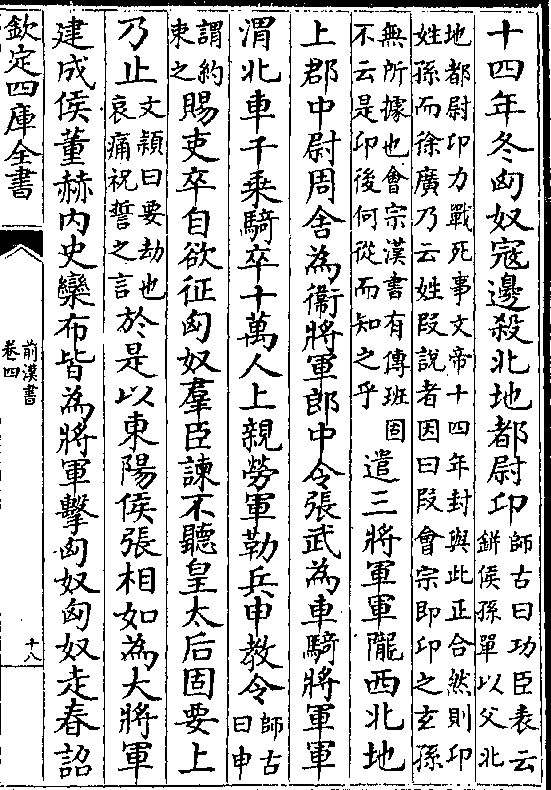 十四年冬匈奴寇邊殺北地都尉卬師古曰功臣表云缾侯孫單以父北
地都尉卬力戰死事文帝十四年封與此正合然則卬
姓孫而徐廣乃云姓段說者因曰段會宗即卬之玄孫
無所據也會宗漢書有傳班固
不云是卬後何從而知之乎遣三將軍軍隴西北地
上郡中尉周舍為衞將軍郎中令張武為車騎將軍軍
渭北車千乗騎卒十萬人上親勞軍勒兵申教令師古曰申
謂約束之賜吏卒自欲征匈奴羣臣諫不聽皇太后固要上
乃止文頴曰要劫也哀痛祝誓之言於是以東陽侯張相如為大將軍
建成侯董赫内史欒布皆為將軍擊匈奴匈奴走春詔
欽定四庫全書
前漢書
卷四
十八